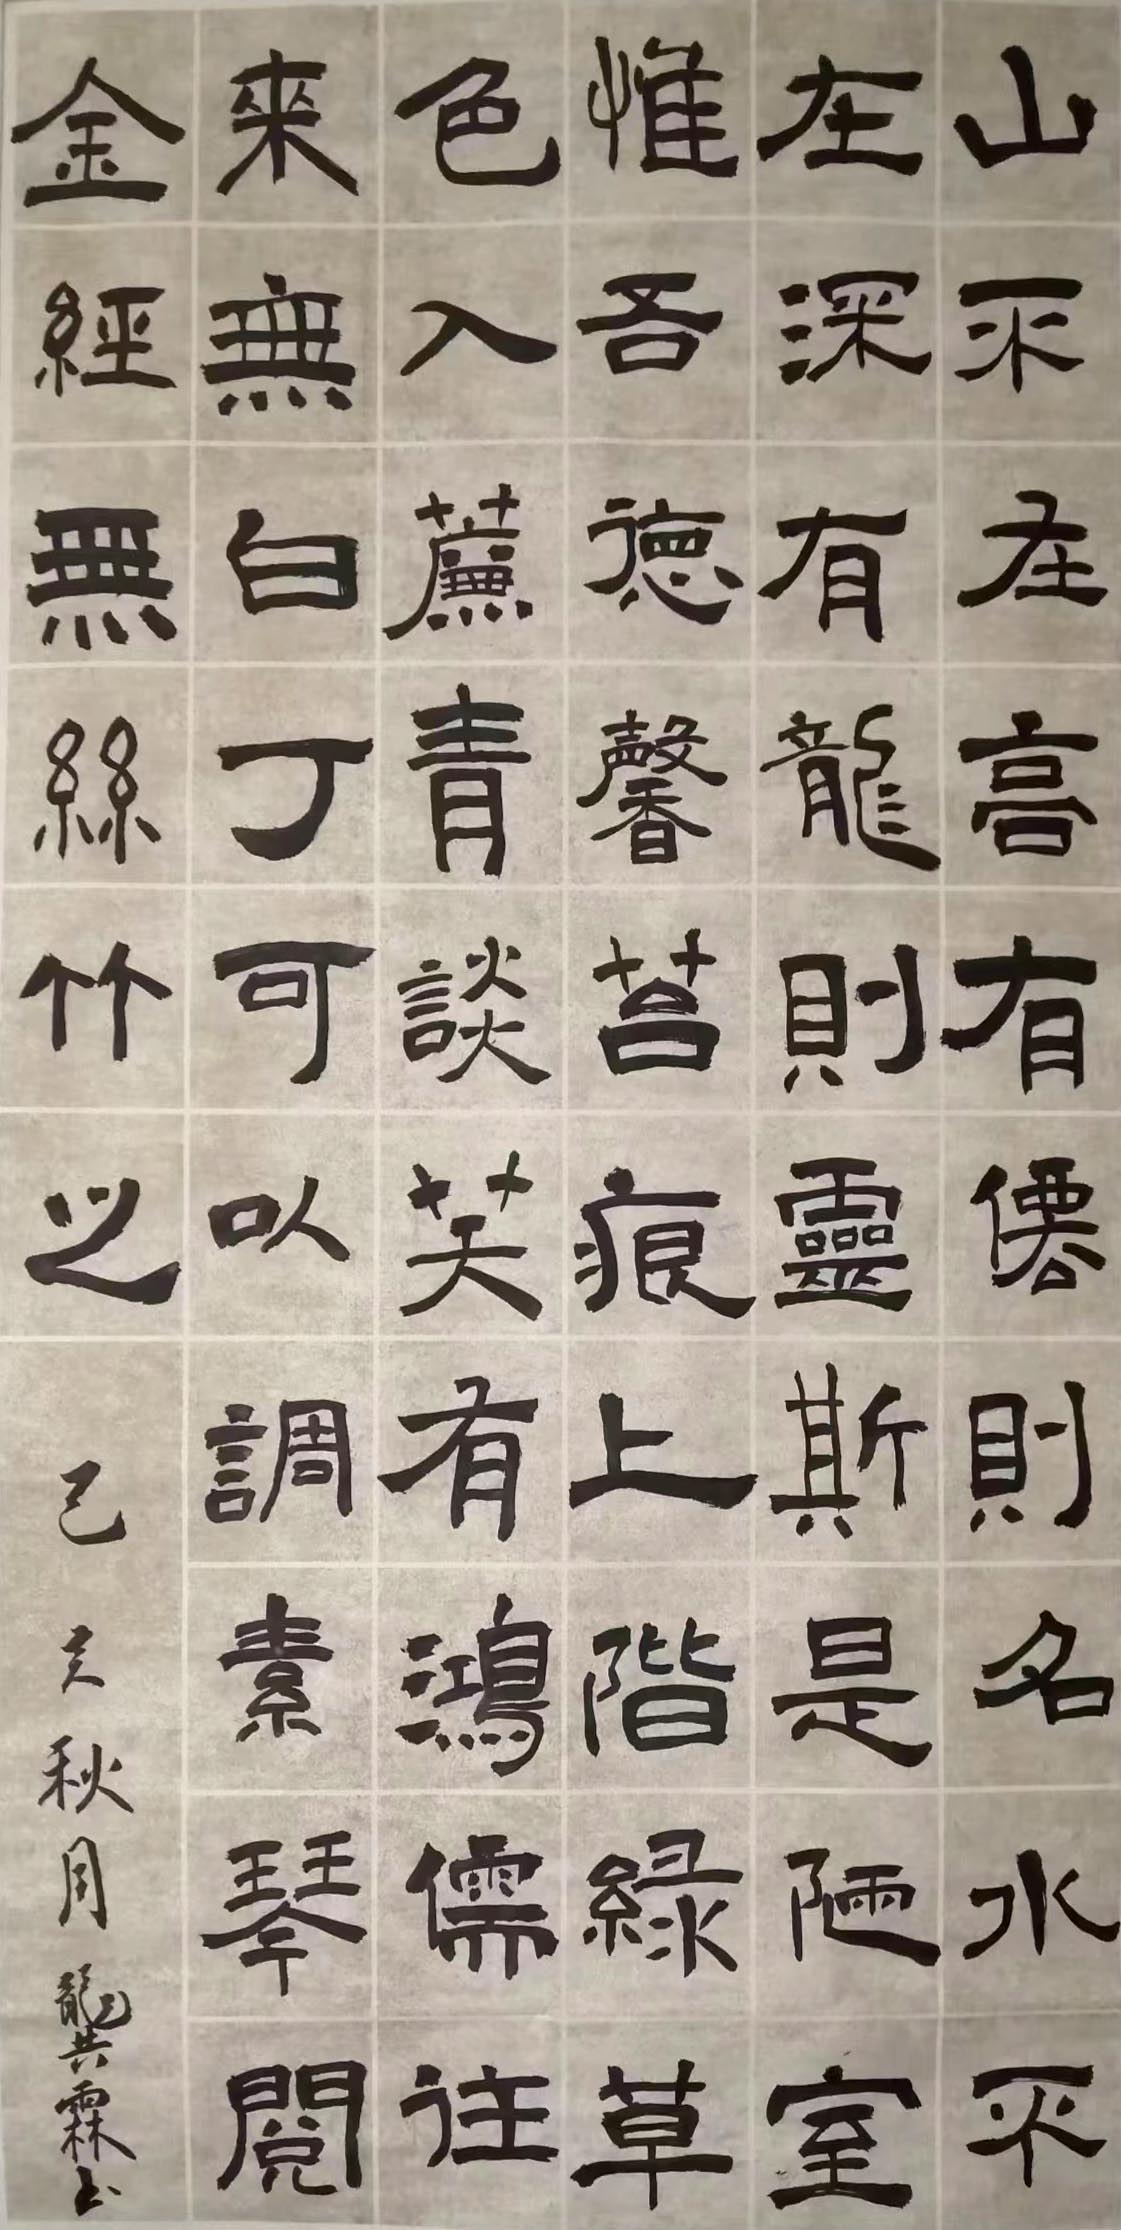 山不在高有僊則名水不
在深有龍則靈斯是陋室
惟吾德馨苔痕上階緑草
色入薕青談笑有鴻儒往
來無白丁可以調素琴閱
金經無絲竹之
己亥秋月龔霖书